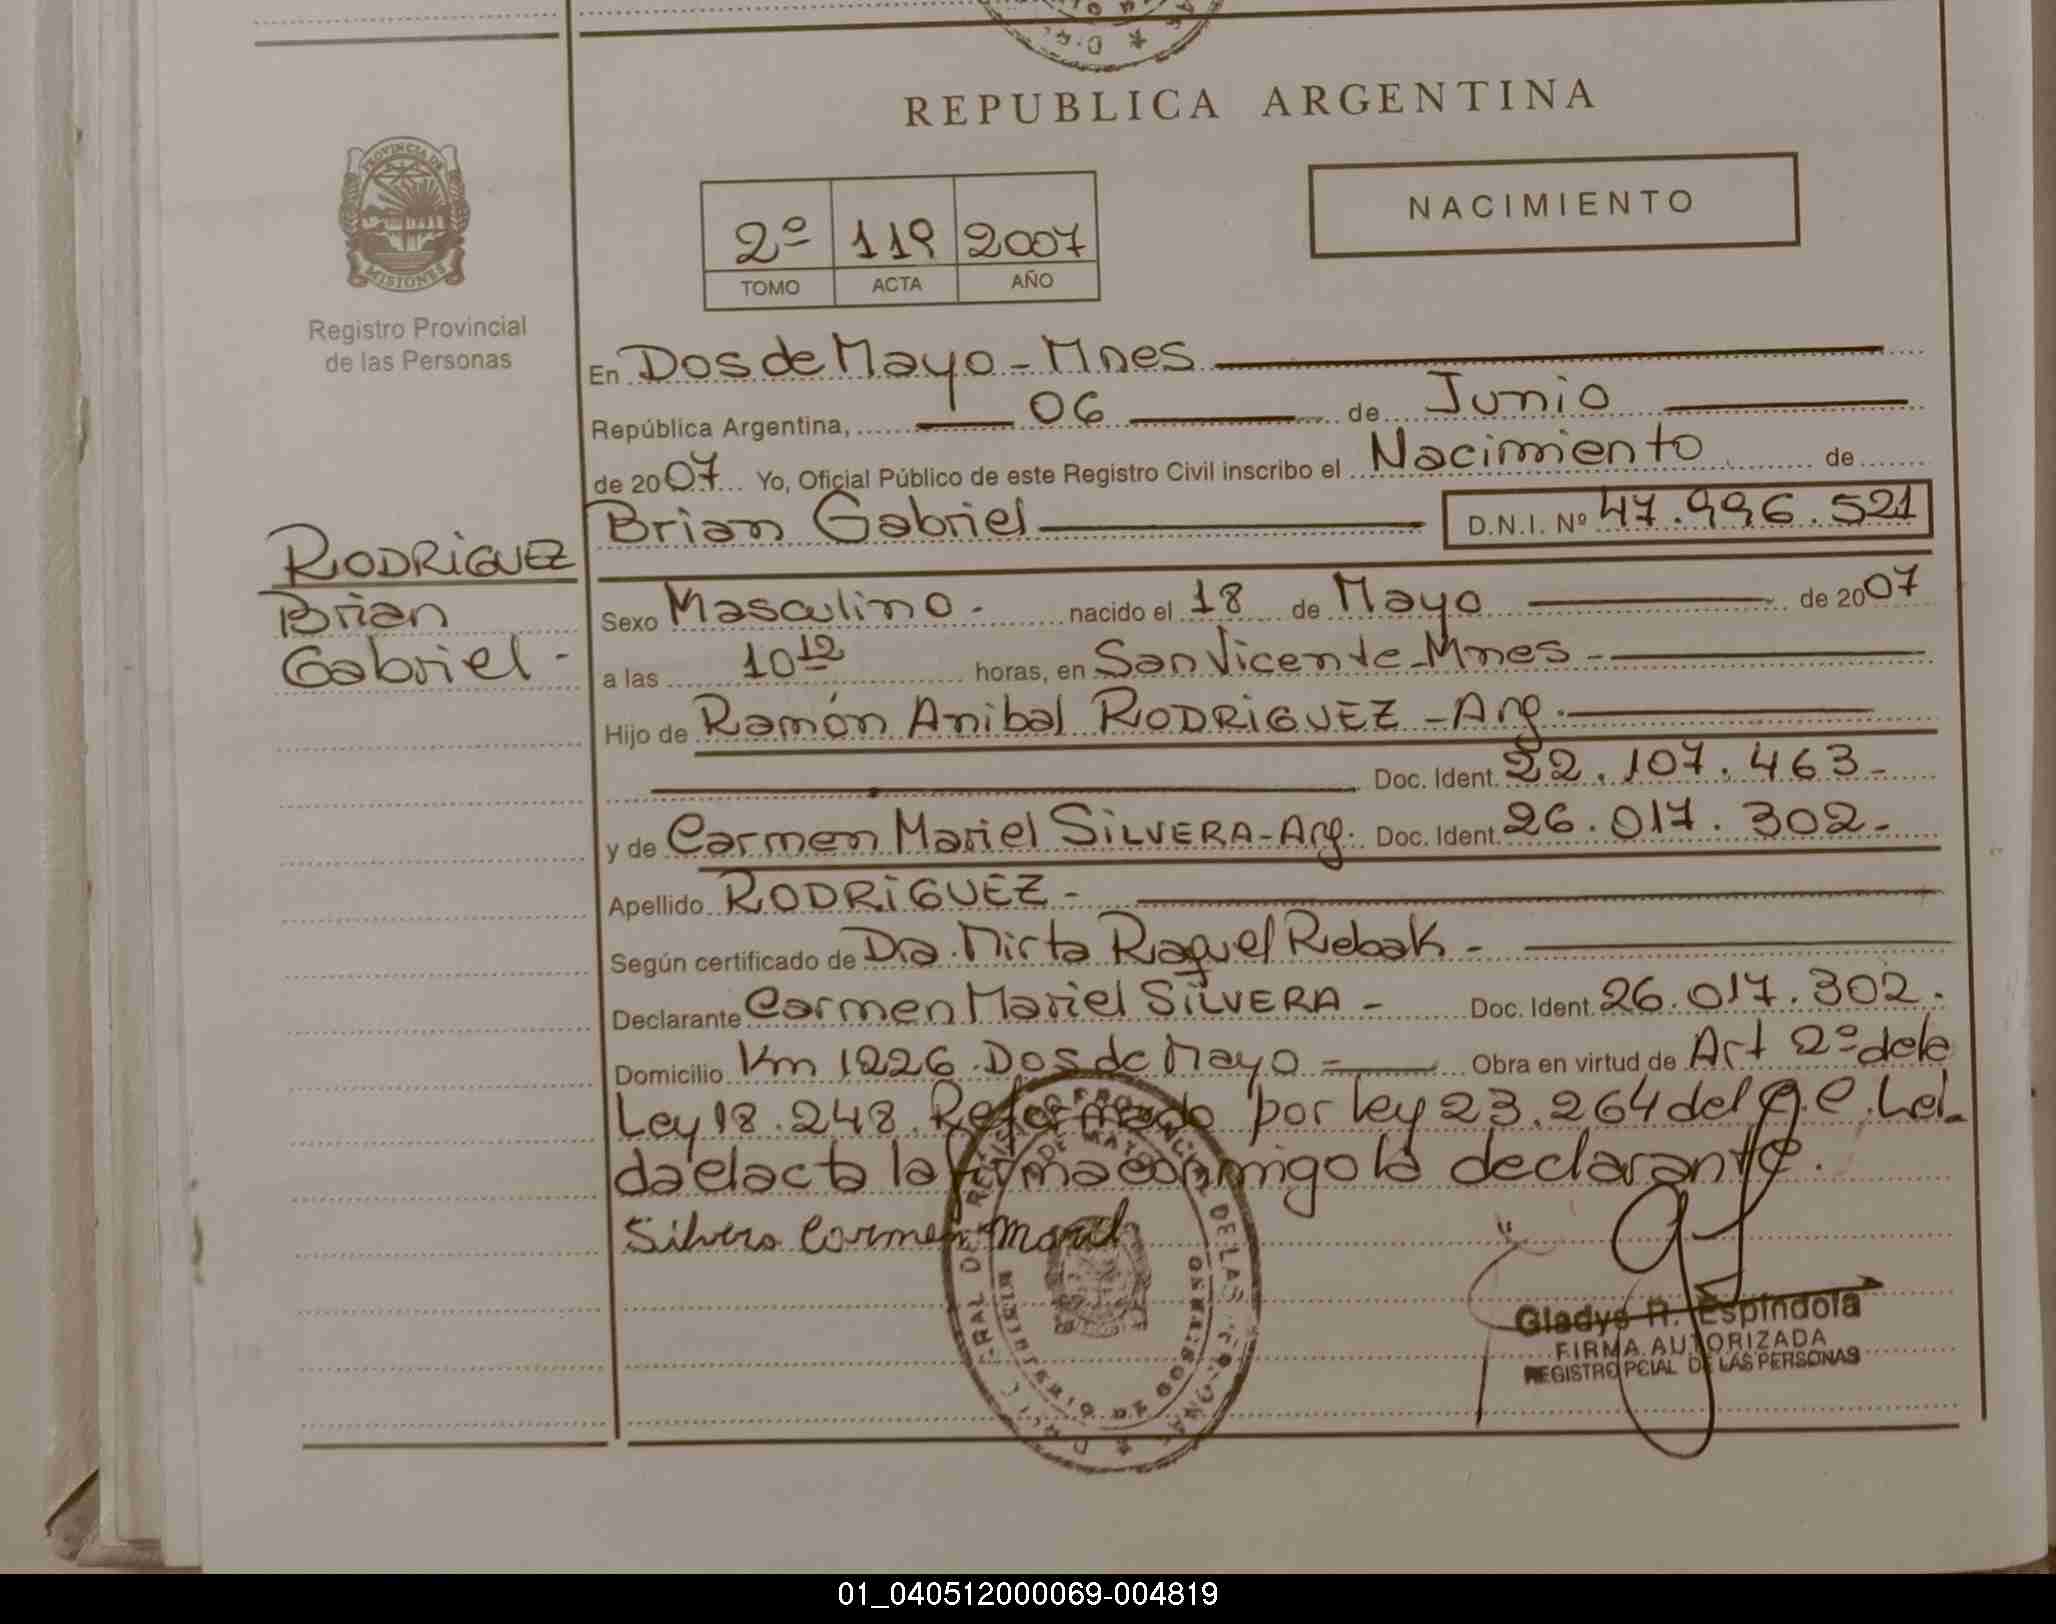 REPUBLICA ARGENTINA
PROVINCIA DE
MISIONES
Registro Provincial
de las Personas
NACIMIENTO
2º 119 2007
TOMO ACTA AÑO
En Dos de Mayo - Mnes
República Argentina, 06 de Junio
de 2007 Yo, Oficial Público de este Registro Civil inscribo el Nacimiento de
Brian Gabriel D.N.I. Nº 47.996.521
RODRIGUEZ
Brian
Gabriel -
Sexo Masculino - nacido el 18 de Mayo de 2007
a las 10 12 horas, en San Vicente - Mnes -
Hijo de Ramón Anibal RODRIGUEZ - Arg.
Doc. Ident. 22.107.463-
y de Carmen Mariel SILVERA - Arg. Doc. Ident. 26.017.302-
Apellido RODRIGUEZ -
Según certificado de Dra. Mirta Raquel Rebak -
Declarante Carmen Mariel SILVERA - Doc. Ident. 26.017.302.
Domicilio Km 1226 . Dos de Mayo = Obra en virtud de Art 2º de la
Ley 18.248 Reformado por ley 23.264 del Leí-
da el acta la firma conmigo la declarante.
Silvera Carmen Mariel
Gladys Espíndola
FIRMA AUTORIZADA
REGISTRO PCIAL DE LAS PERSONAS
01_040512000069-004819